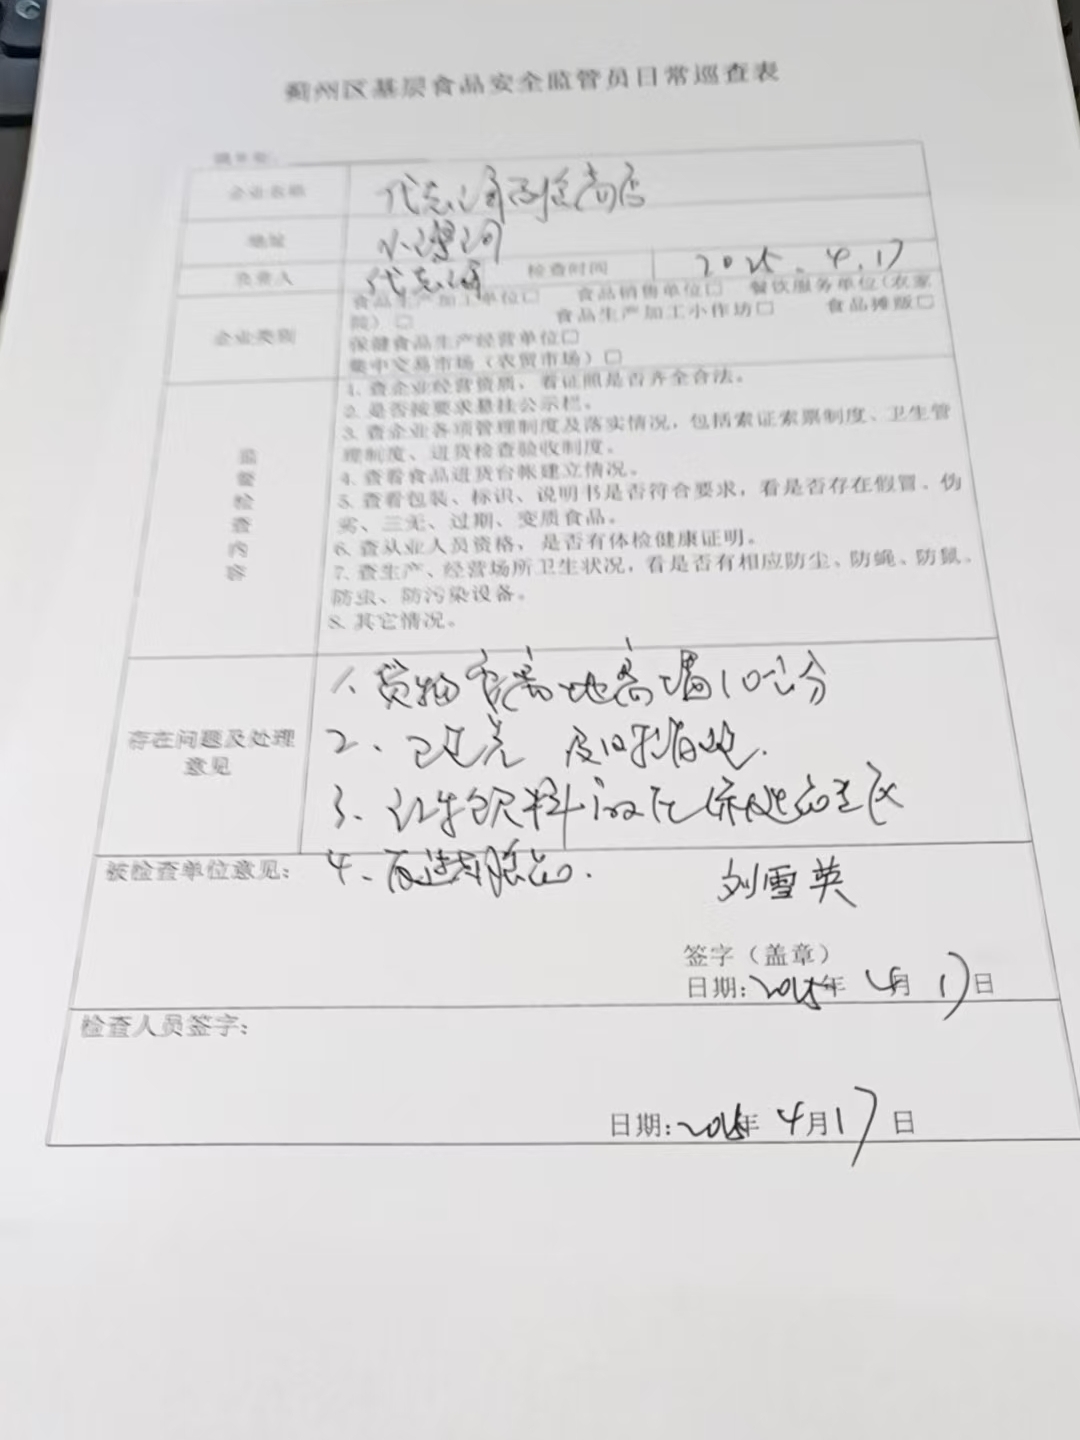 蓟州区基层食品安全监管员日常巡查表
企业名称
地址 小漫河
负责人 检查时间 2025.4.17
企业类别 食品生产加工单位□ 食品销售单位□ 餐饮服务单位(农家
院)□ 食品生产加工小作坊□ 食品摊贩□
保健食品生产经营单位□
集中交易市场(农贸市场)□
监督检查内容
1. 查企业经营资质,看证照是否齐全合法。
2. 是否按要求悬挂公示栏。
3. 查企业各项管理制度及落实情况,包括索证索票制度、卫生管
理制度、进货检查验收制度。
4. 查看食品进货台帐建立情况。
5. 查看包装、标识、说明书是否符合要求,看是否存在假冒、伪
劣、三无、过期、变质食品。
6. 查从业人员资格,是否有体检健康证明。
7. 查生产、经营场所卫生状况,看是否有相应防尘、防蝇、防鼠、
防虫、防污染设备。
8. 其它情况。
存在问题及处理
意见
1、货物离地离墙10公分
2、及时
3、饮料
被检查单位意见: 4、
刘雪英
签字(盖章)
日期:2025年4月17日
检查人员签字:
日期:2025年4月17日